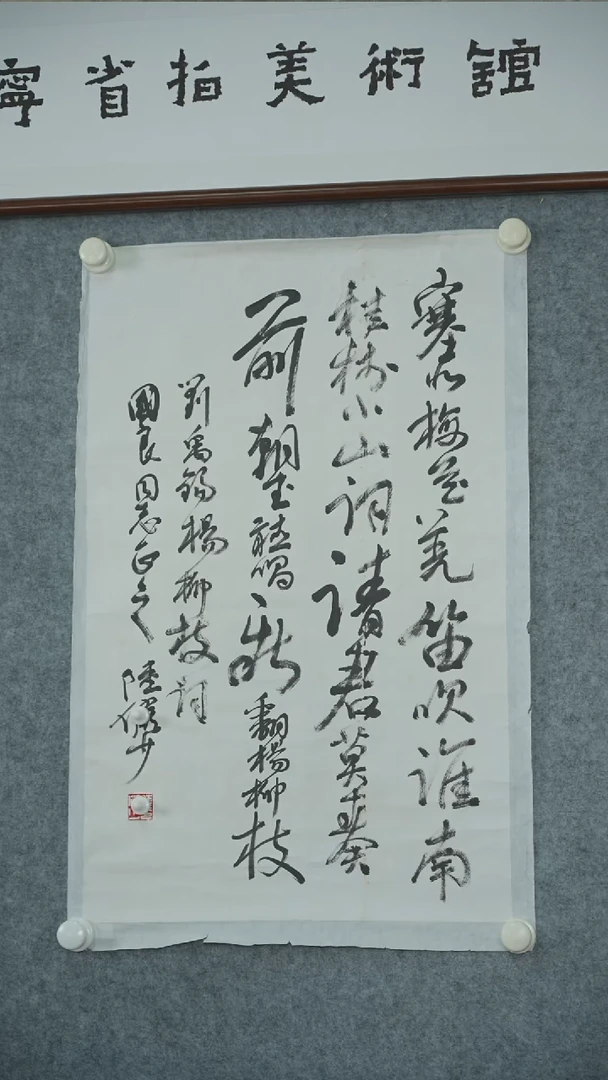 寧省拍美術館
塞北梅花羌笛吹淮南
桂樹小山詞請君莫奏
前朝曲聽唱新翻楊柳枝
劉禹錫楊柳枝詞
國良同志正之 陸儼少